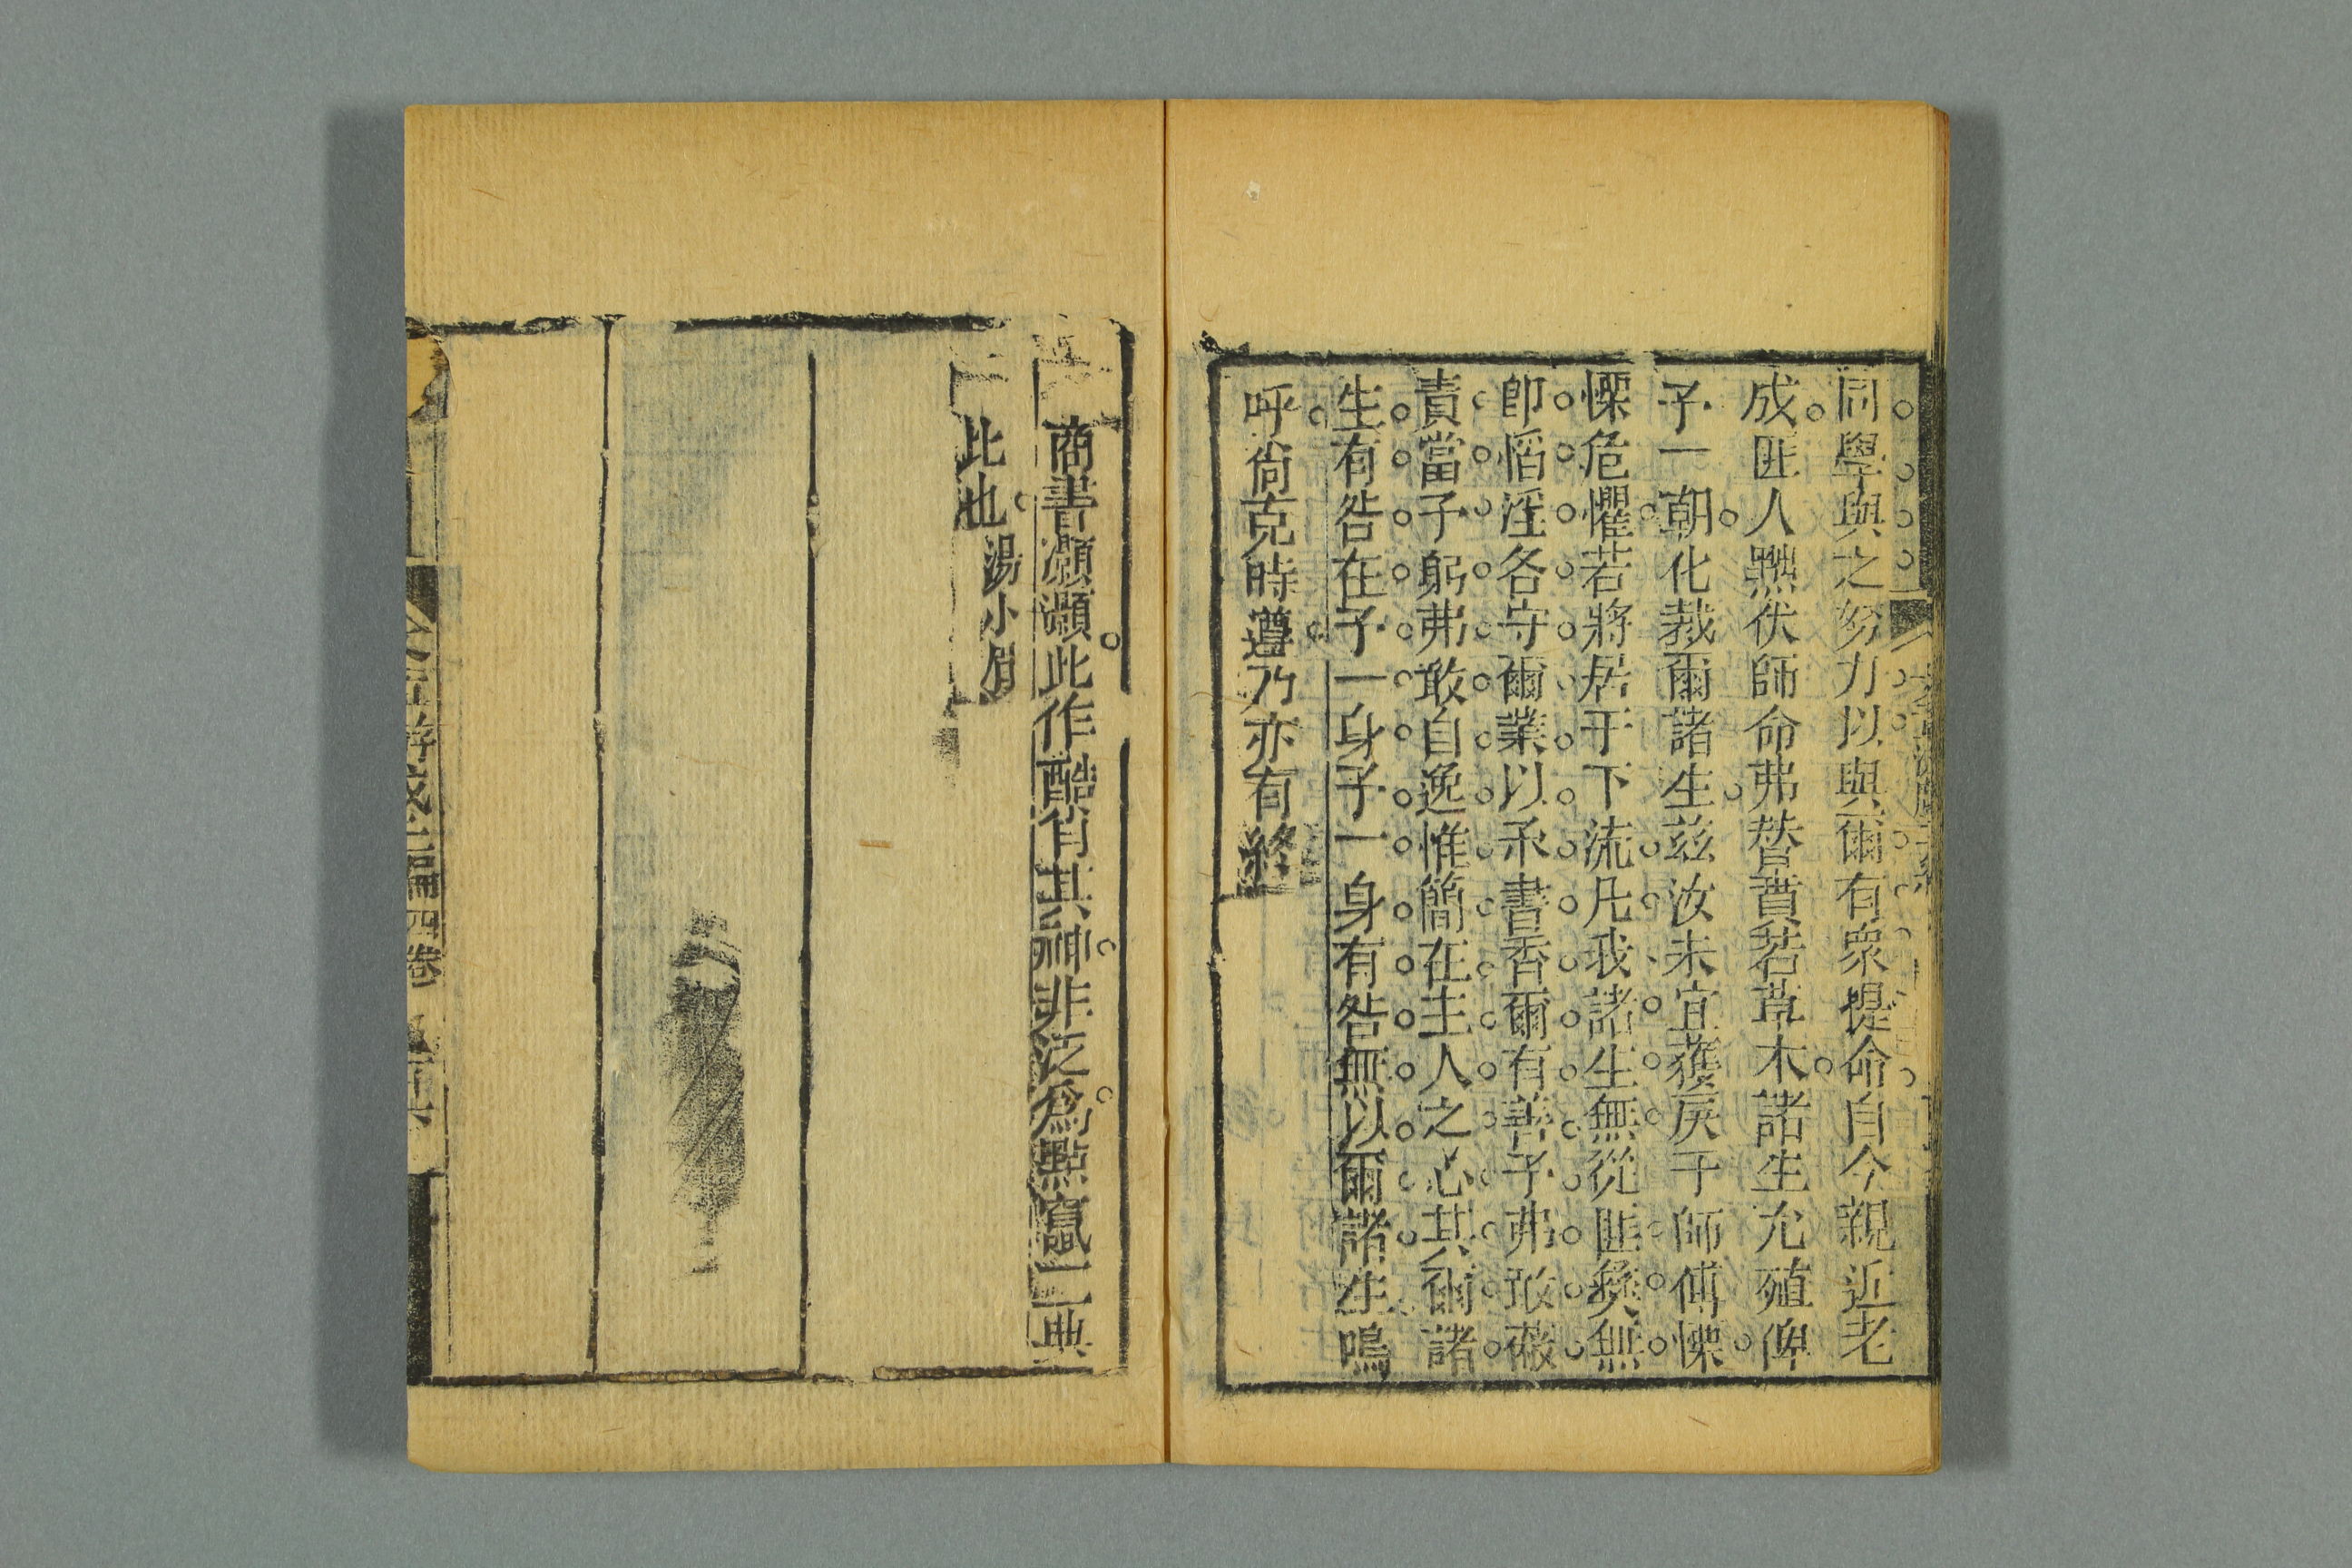 同學與之努力以與爾有衆提命自今親近老
成匪人黜伏師命弗替賁若草木諸生允殖俾
予一朝化裁爾諸生茲汝未宜獲戾于師傅慄
慄危懼若將居于下流凡我諸生無從匪彝無
卽慆淫各守爾業以承書香爾有善予弗敢蔽
責當予躬弗敢自逸惟簡在主人之心其爾諸
生有咎在予一身予一身有咎無以爾諸生嗚
呼尚克時遵乃亦有終
商書灝灝此作酷有其神非泛爲點竄二典
此也湯小眉
四卷